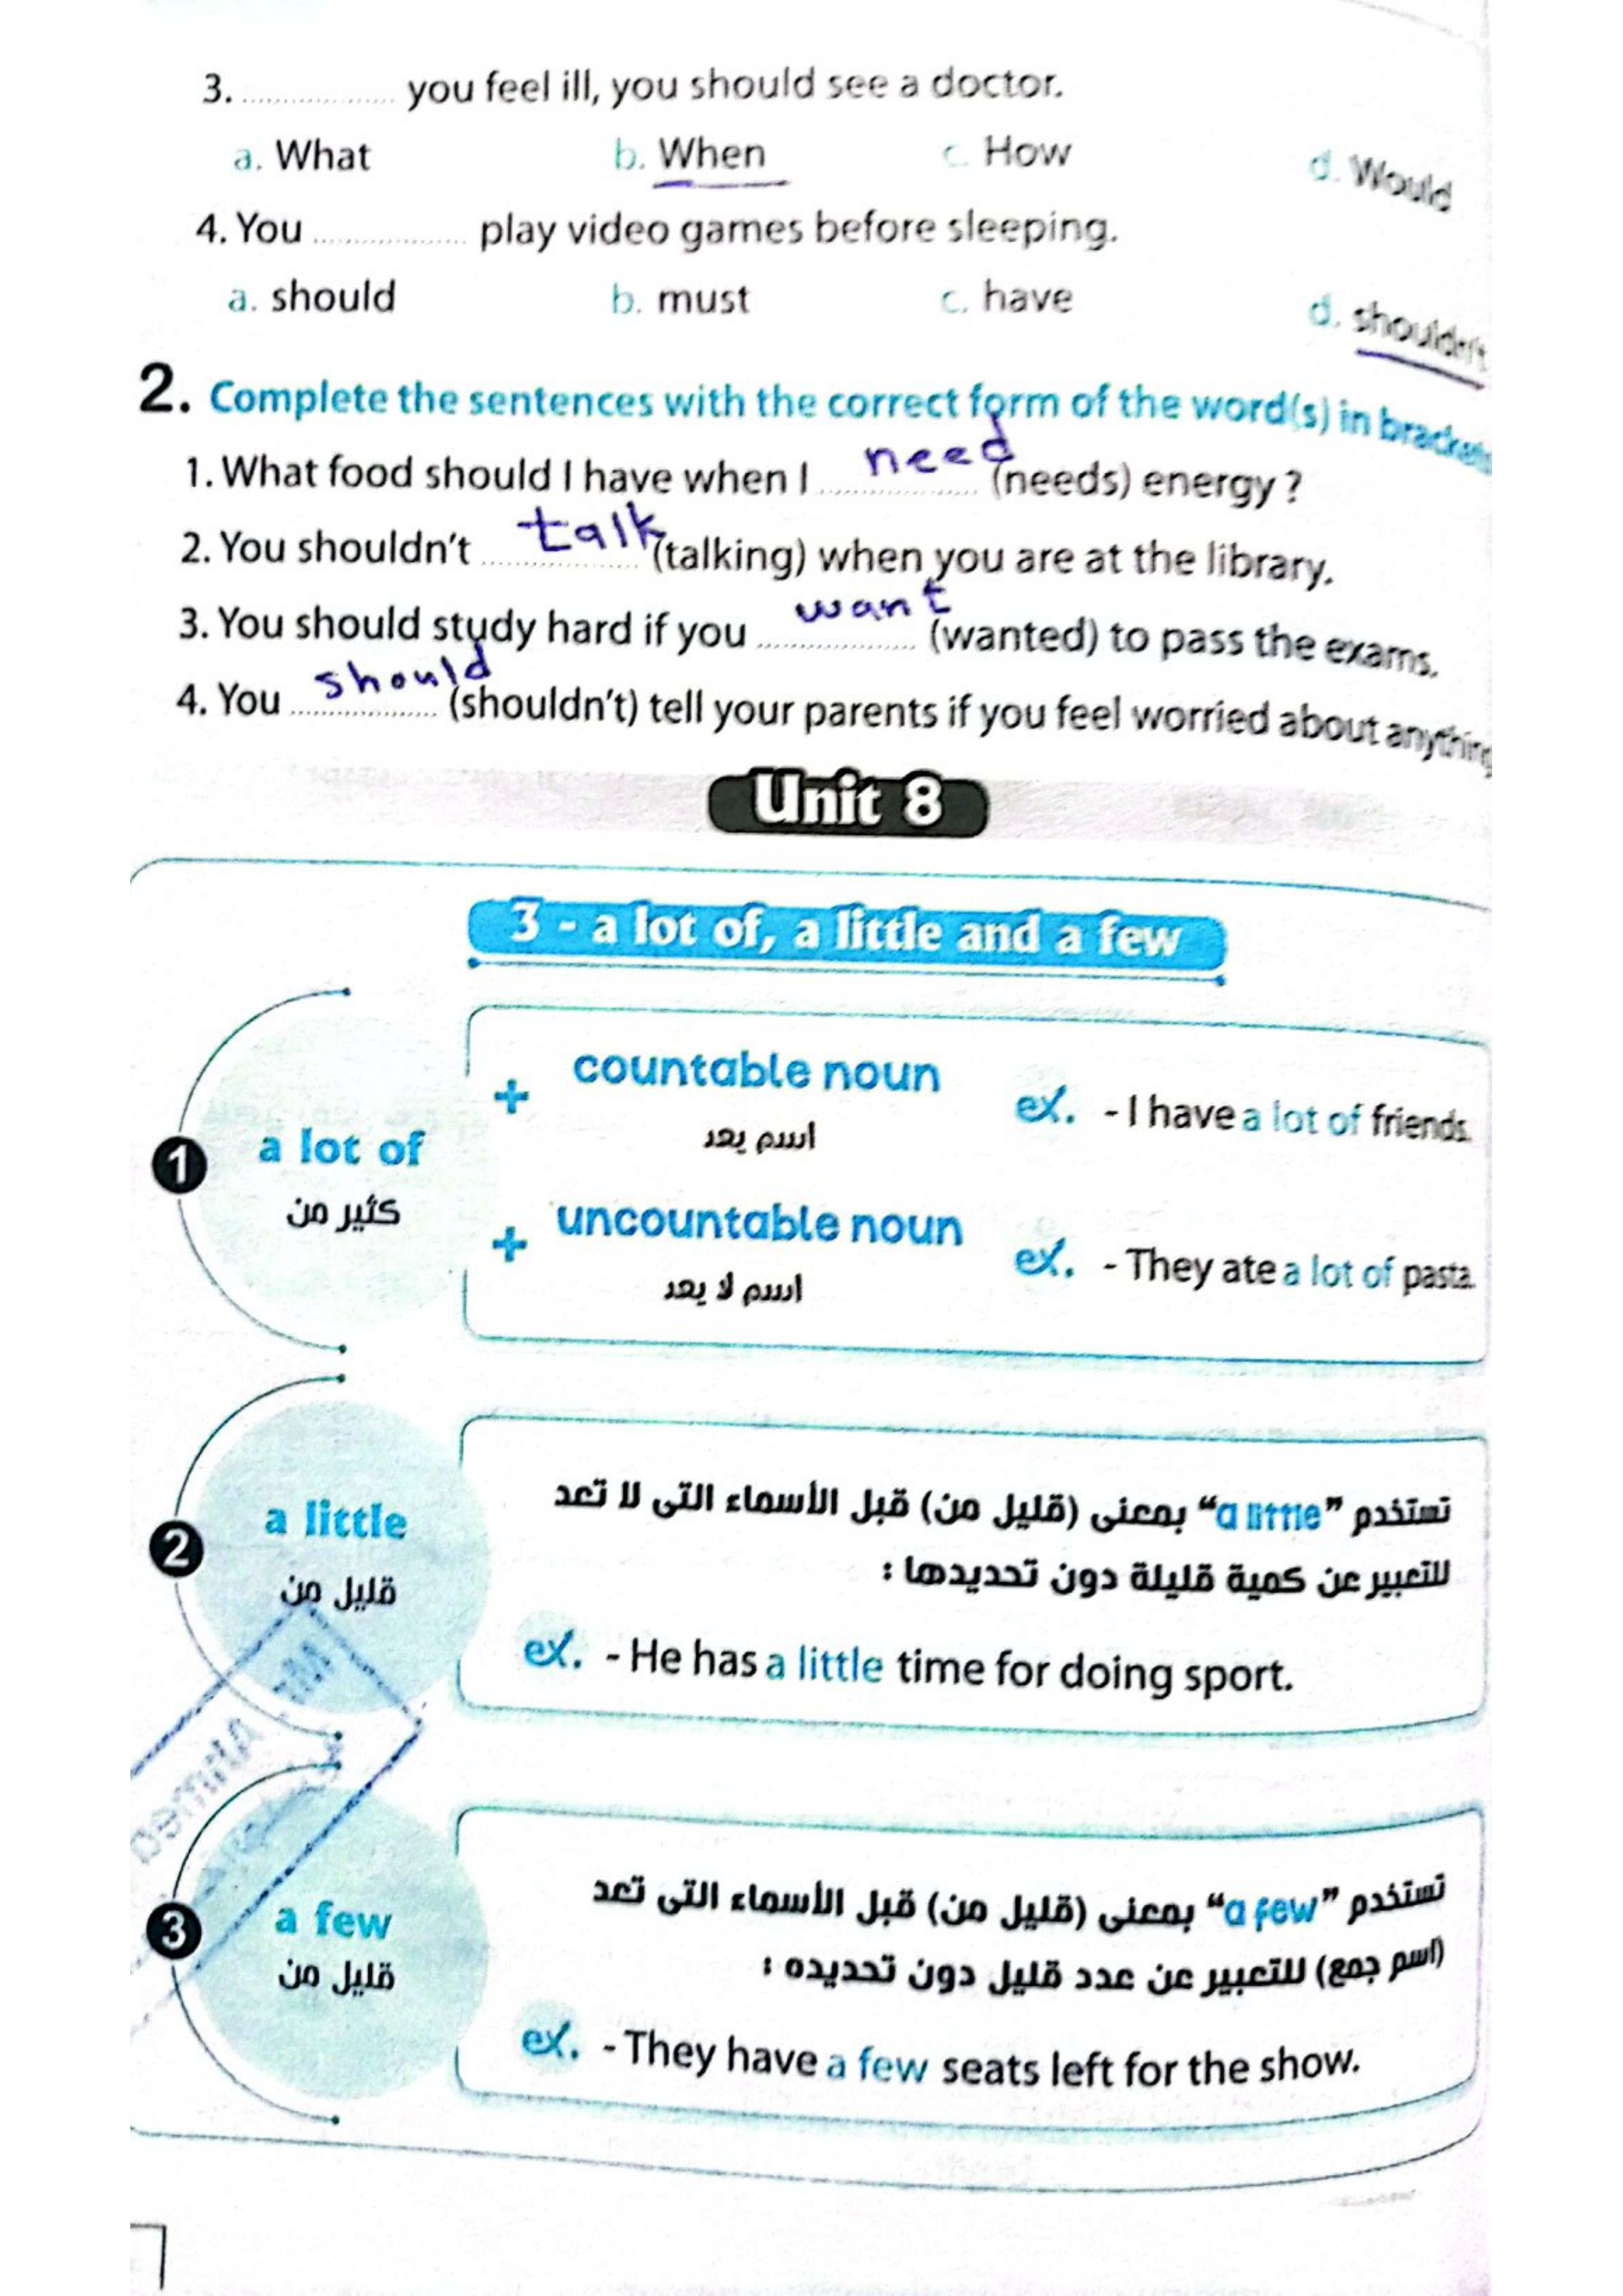 3. .................. you feel ill, you should see a doctor.
a. What b. When c. How d. Would
4. You .................. play video games before sleeping.
a. should b. must c. have d. shouldn't
2. Complete the sentences with the correct form of the word(s) in brackets
1. What food should I have when I need (needs) energy ?
2. You shouldn't talk (talking) when you are at the library.
3. You should study hard if you want (wanted) to pass the exams.
4. You should (shouldn't) tell your parents if you feel worried about anything
Unit 8
3 - a lot of, a little and a few
1 a lot of
كثير من
+ countable noun
اسم يعد
ex. - I have a lot of friends.
+ uncountable noun
اسم لا يعد
ex. - They ate a lot of pasta.
2 a little
قليل من
تستخدم "a little" بمعنى (قليل من) قبل الأسماء التى لا تعد
للتعبير عن كمية قليلة دون تحديدها :
ex. - He has a little time for doing sport.
Mr. Ahmed
3 a few
قليل من
تستخدم "a few" بمعنى (قليل من) قبل الأسماء التى تعد
(اسم جمع) للتعبير عن عدد قليل دون تحديده :
ex. - They have a few seats left for the show.